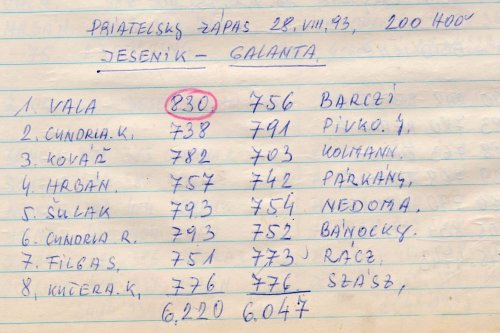 PRIATELSKÝ ZÁPAS 28. VIII. 93, 200 HOOV
JESENIK – GALANTA
1. VALA 830 756 BARCZI
2. CUNDRLA. K. 738 791 PIVKO. J.
3. KOVÁŘ 782 703 KOLMANN.
4. HRBÁN. 757 742 PÁRKÁNY,
5. ŠULAK 793 754 NEDOMA.
6. CUNDRLA R. 793 752 BÁNOCKY.
7. FILGAS, 751 773 RÁCZ,
8, KUČERA. K, 776 776 SZÁSZ,
6.220 6.047